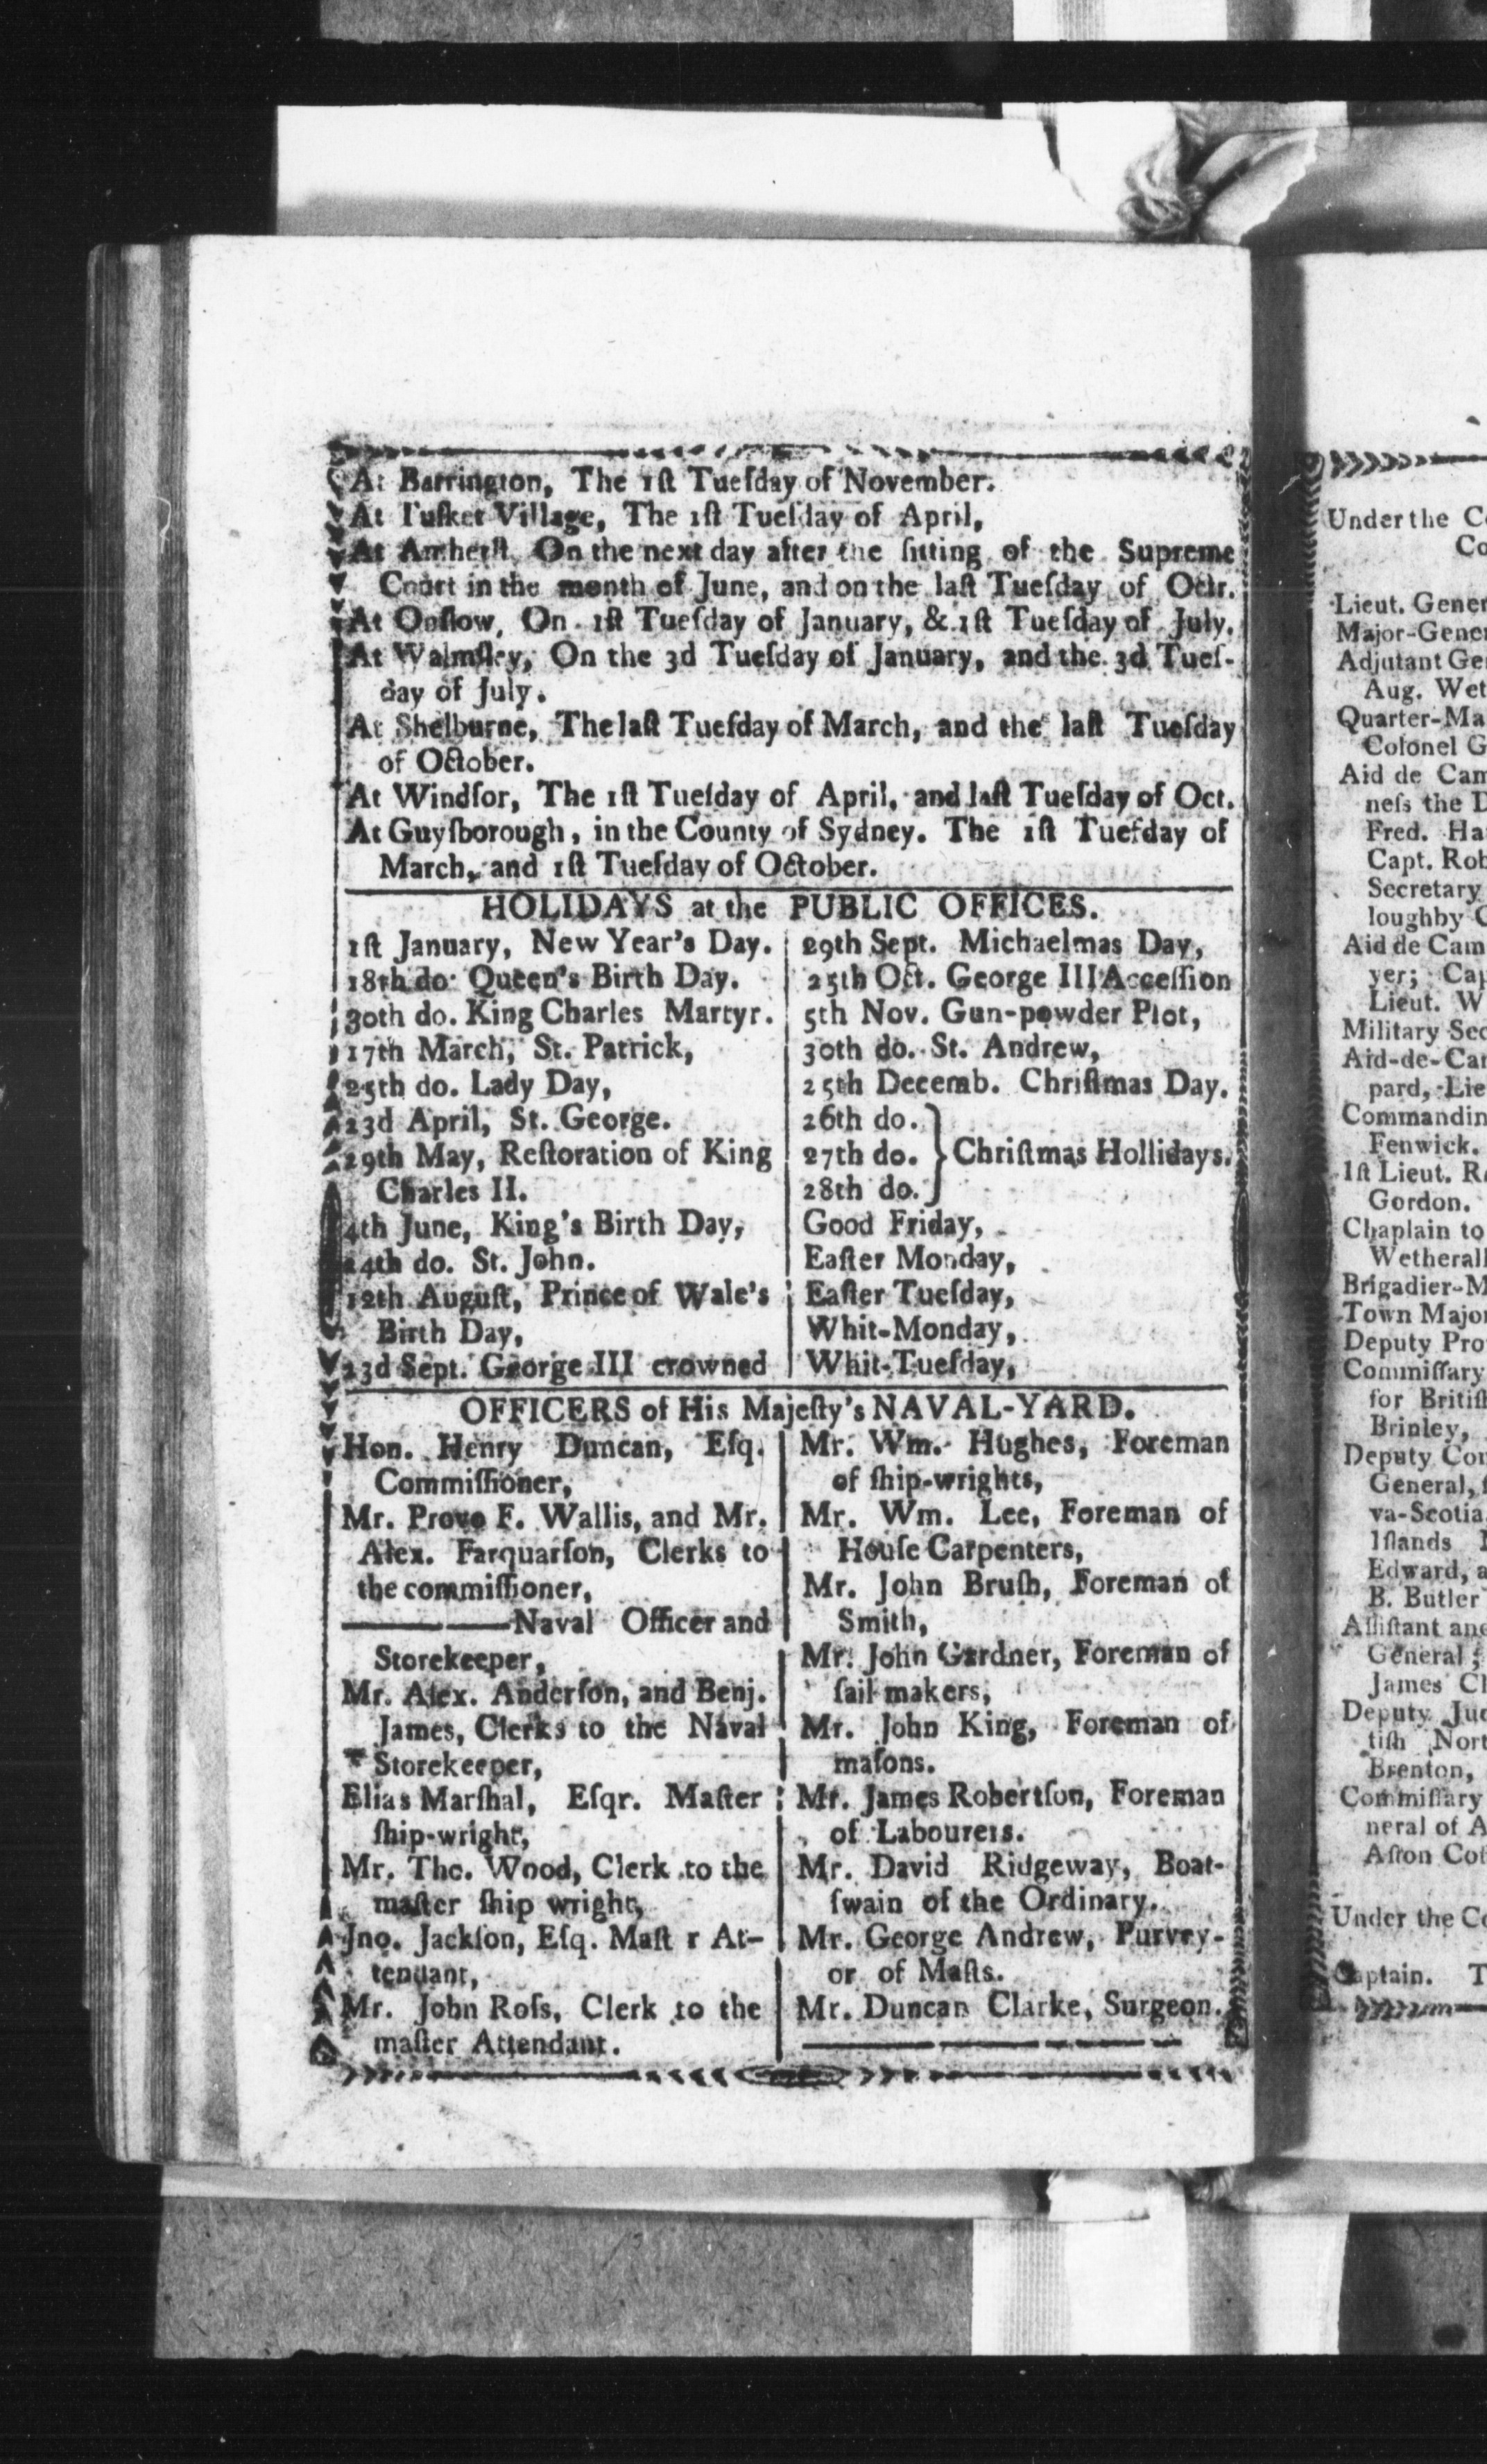 At Barrington, The 1ſt Tueſday of November.
At Tuſket Village, The 1ſt Tueſday of April,
At Amherſt, On the next day after the ſitting of the Supreme
Court in the month of June, and on the laſt Tueſday of Octr.
At Onſlow, On 1ſt Tueſday of January, & 1ſt Tueſday of July.
At Walmſley, On the 3d Tueſday of January, and the 3d Tueſ-
day of July.
At Shelburne, The laſt Tueſday of March, and the laſt Tueſday
of October.
At Windſor, The 1ſt Tueſday of April, and laſt Tueſday of Oct.
At Guyſborough, in the County of Sydney. The 1ſt Tueſday of
March, and 1ſt Tueſday of October.
HOLIDAYS at the PUBLIC OFFICES.
1ſt January, New Year's Day.
18th do Queen's Birth Day.
30th do. King Charles Martyr.
17th March, St. Patrick,
25th do. Lady Day,
23d April, St. George.
29th May, Reſtoration of King
Charles II.
4th June, King's Birth Day,
24th do. St. John.
12th Auguſt, Prince of Wale's
Birth Day,
23d Sept. George III crowned
29th Sept. Michaelmas Day,
25th Oct. George III Acceſſion
5th Nov. Gun-powder Plot,
30th do. St. Andrew,
25th Decemb. Chriſtmas Day.
26th do.
27th do. } Chriſtmas Hollidays.
28th do.
Good Friday,
Eaſter Monday,
Eaſter Tueſday,
Whit-Monday,
Whit-Tueſday,
OFFICERS of His Majeſty's NAVAL-YARD.
Hon. Henry Duncan, Eſq.
Commiſſioner,
Mr. Provo F. Wallis, and Mr.
Alex. Farquarſon, Clerks to
the commiſſioner,
———Naval Officer and
Storekeeper,
Mr. Alex. Anderſon, and Benj.
James, Clerks to the Naval
Storekeeper,
Elias Marſhal, Eſqr. Maſter
ſhip-wright,
Mr. Tho. Wood, Clerk to the
maſter ſhip wright,
Jno. Jackſon, Eſq. Maſt r At-
tendant,
Mr. John Roſs, Clerk to the
maſter Attendant.
Mr. Wm. Hughes, Foreman
of ſhip-wrights,
Mr. Wm. Lee, Foreman of
Houſe Carpenters,
Mr. John Bruſh, Foreman of
Smith,
Mr. John Gardner, Foreman of
ſail makers,
Mr. John King, Foreman of
maſons.
Mr. James Robertſon, Foreman
of Labourers.
Mr. David Ridgeway, Boat-
ſwain of the Ordinary.
Mr. George Andrew, Purvey-
or of Maſts.
Mr. Duncan Clarke, Surgeon.
Under the
Lieut.
Major-
Adjutant
Aug.
Quarter-
Colonel
Aid de
neſs the
Fred.
Capt.
Secretary
loughby
Aid de
yer;
Lieut.
Military
Aid-de-
pard,
Fenwick.
1ſt Lieut.
Gordon.
Chaplain to
Brigadier-
Town
Deputy
Commiſſary
for
Brinley,
Deputy
General,
va-Scotia
Iſlands
Edward,
B. Butler
Aſſiſtant
General;
James
Deputy
tiſh
Brenton,
Commiſſary
neral of
Aſton
Under the
Captain.